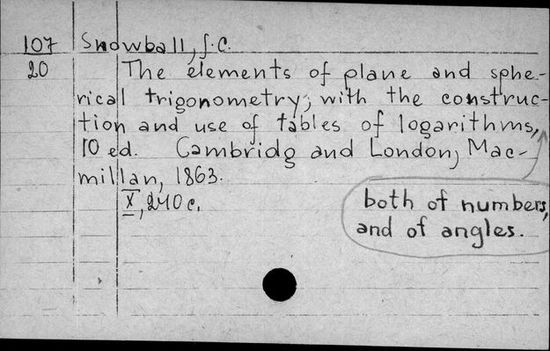 107 Snowball, J. C.
20 The elements of plane and sphe-
rical trigonometry; with the construc-
tion and use of tables of logarithms,
10 ed. Cambridg and London, Mac-
millan, 1863.
X, 240 c.
both of numbers,
and of angles.